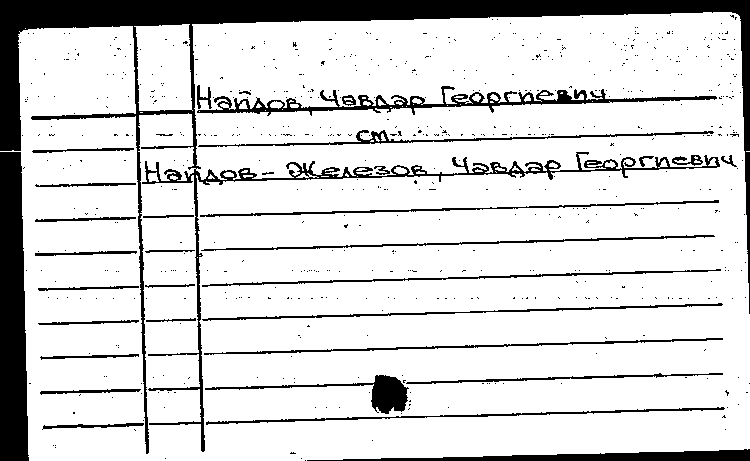 Найдов, Чавдар Георгиевич
см.:
Найдов - Железов, Чавдар Георгиевич